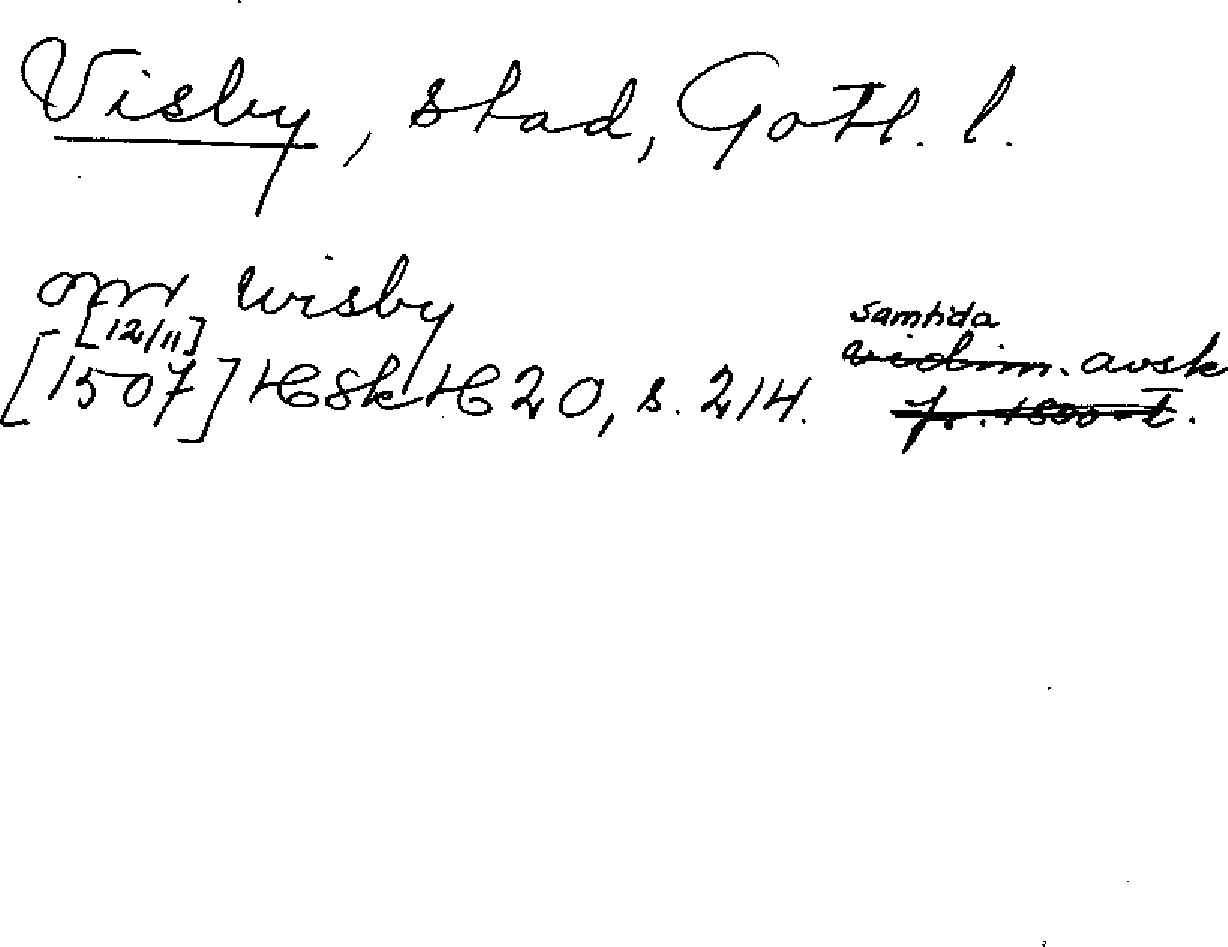 Visby, stad, Gotl. l.
wisby
[12/11] samtida
[1507] HSkH 20, s. 214. vidim. avsk
f. 1800-t.